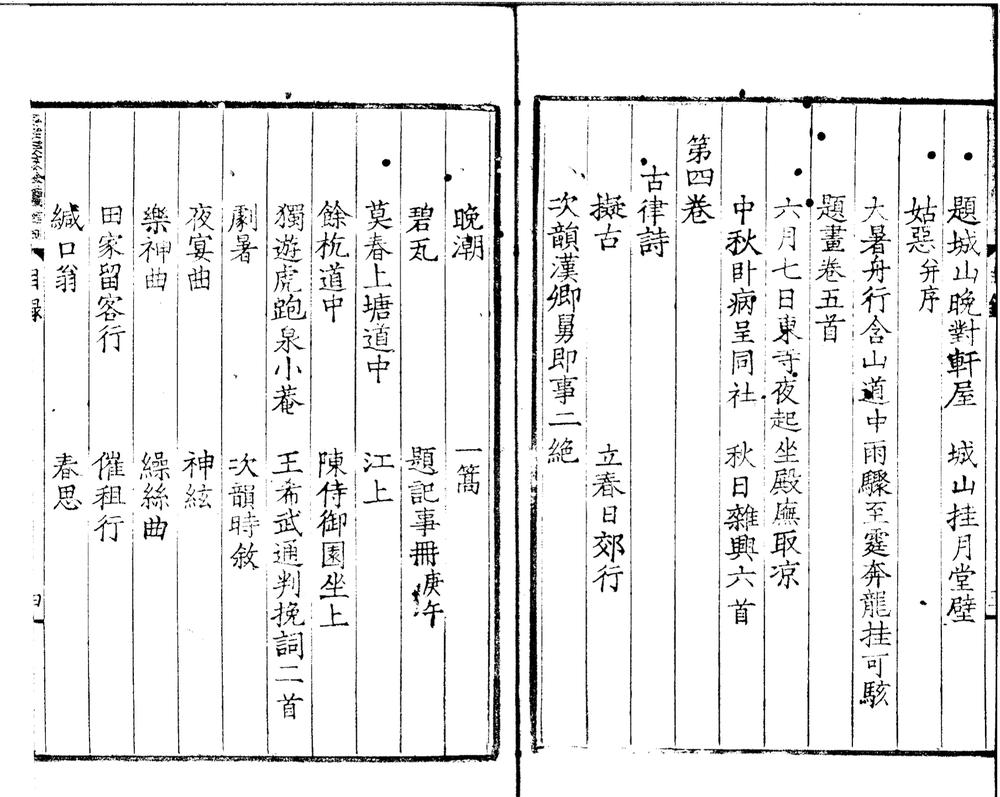 題城山晚對軒屋　城山挂月堂壁
姑惡并序
大暑舟行含山道中雨驟至霆奔龍挂可駭
題畫卷五首
六月七日東寺夜起坐殿廡取凉
中秋卧病呈同社　秋日雜興六首
第四卷
古律詩
擬古　立春日郊行
次韻漢卿舅即事二絶
晚潮　一篙
碧瓦　題記事冊庚午
莫春上塘道中　江上
餘杭道中　陳侍御園坐上
獨遊虎跑泉小菴　王希武通判挽詞二首
劇暑　次韻時敘
夜宴曲　神絃
樂神曲　繰絲曲
田家留客行　催租行
緘口翁　春思
目録
四